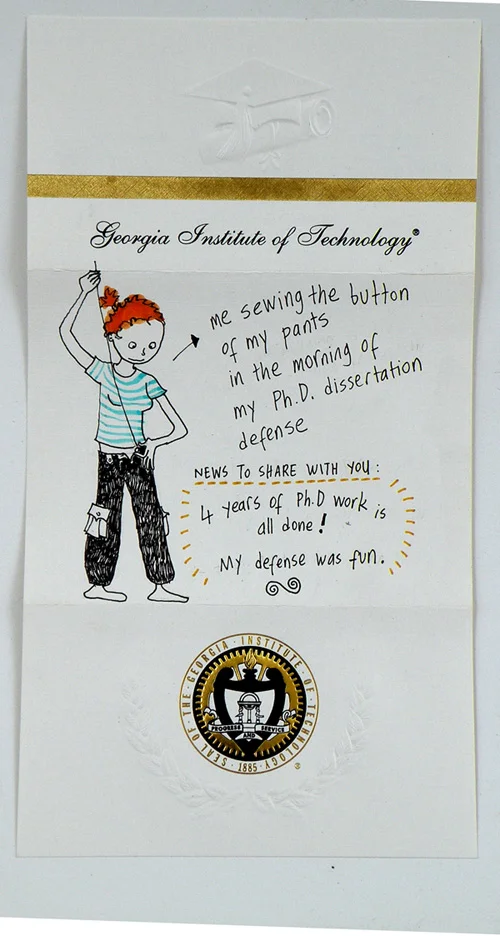 Georgia Institute of Technology®
me sewing the button
of my pants
in the morning of
my Ph.D. dissertation
defense
NEWS TO SHARE WITH YOU :
4 years of Ph.D work is
all done !
My defense was fun.
SEAL OF THE GEORGIA INSTITUTE OF TECHNOLOGY
PROGRESS AND SERVICE
1885
®